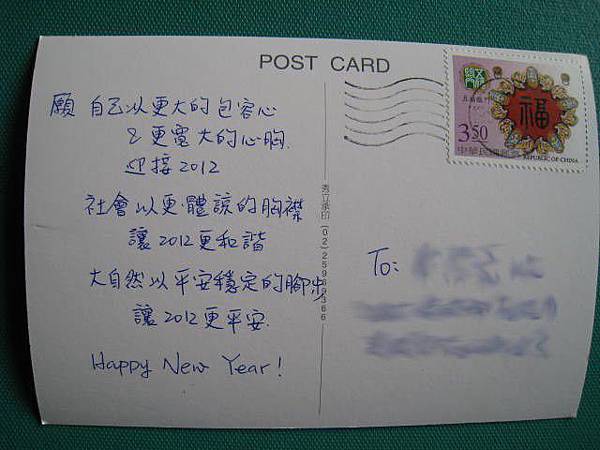 POST CARD
願 自己以更大的包容心
& 更寬大的心胸
迎接2012
社會以更體諒的胸襟
讓2012更和諧
大自然以平安穩定的腳步
讓2012更平安.
Happy New Year!
五福臨門
福
3.50
中華民國郵票
REPUBLIC OF CHINA
To:
秀立承印 (02)25969366